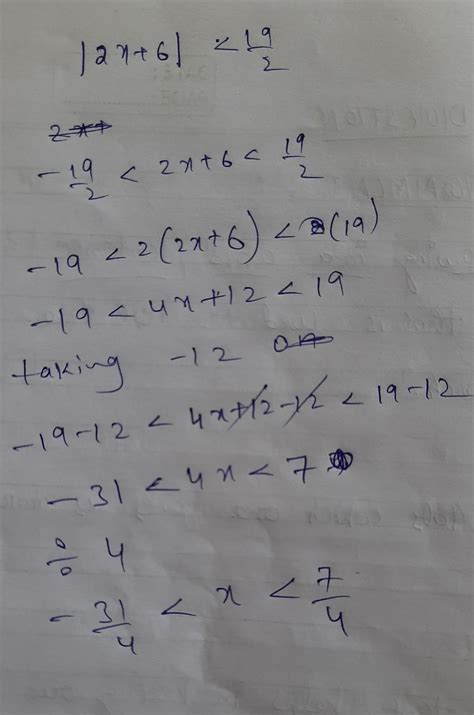 |2x+6| < 19/2
-19/2 < 2x+6 < 19/2
-19 < 2(2x+6) < (19)
-19 < 4x+12 < 19
taking -12
-19-12 < 4x+12-12 < 19-12
-31 < 4x < 7
÷ 4
-31/4 < x < 7/4